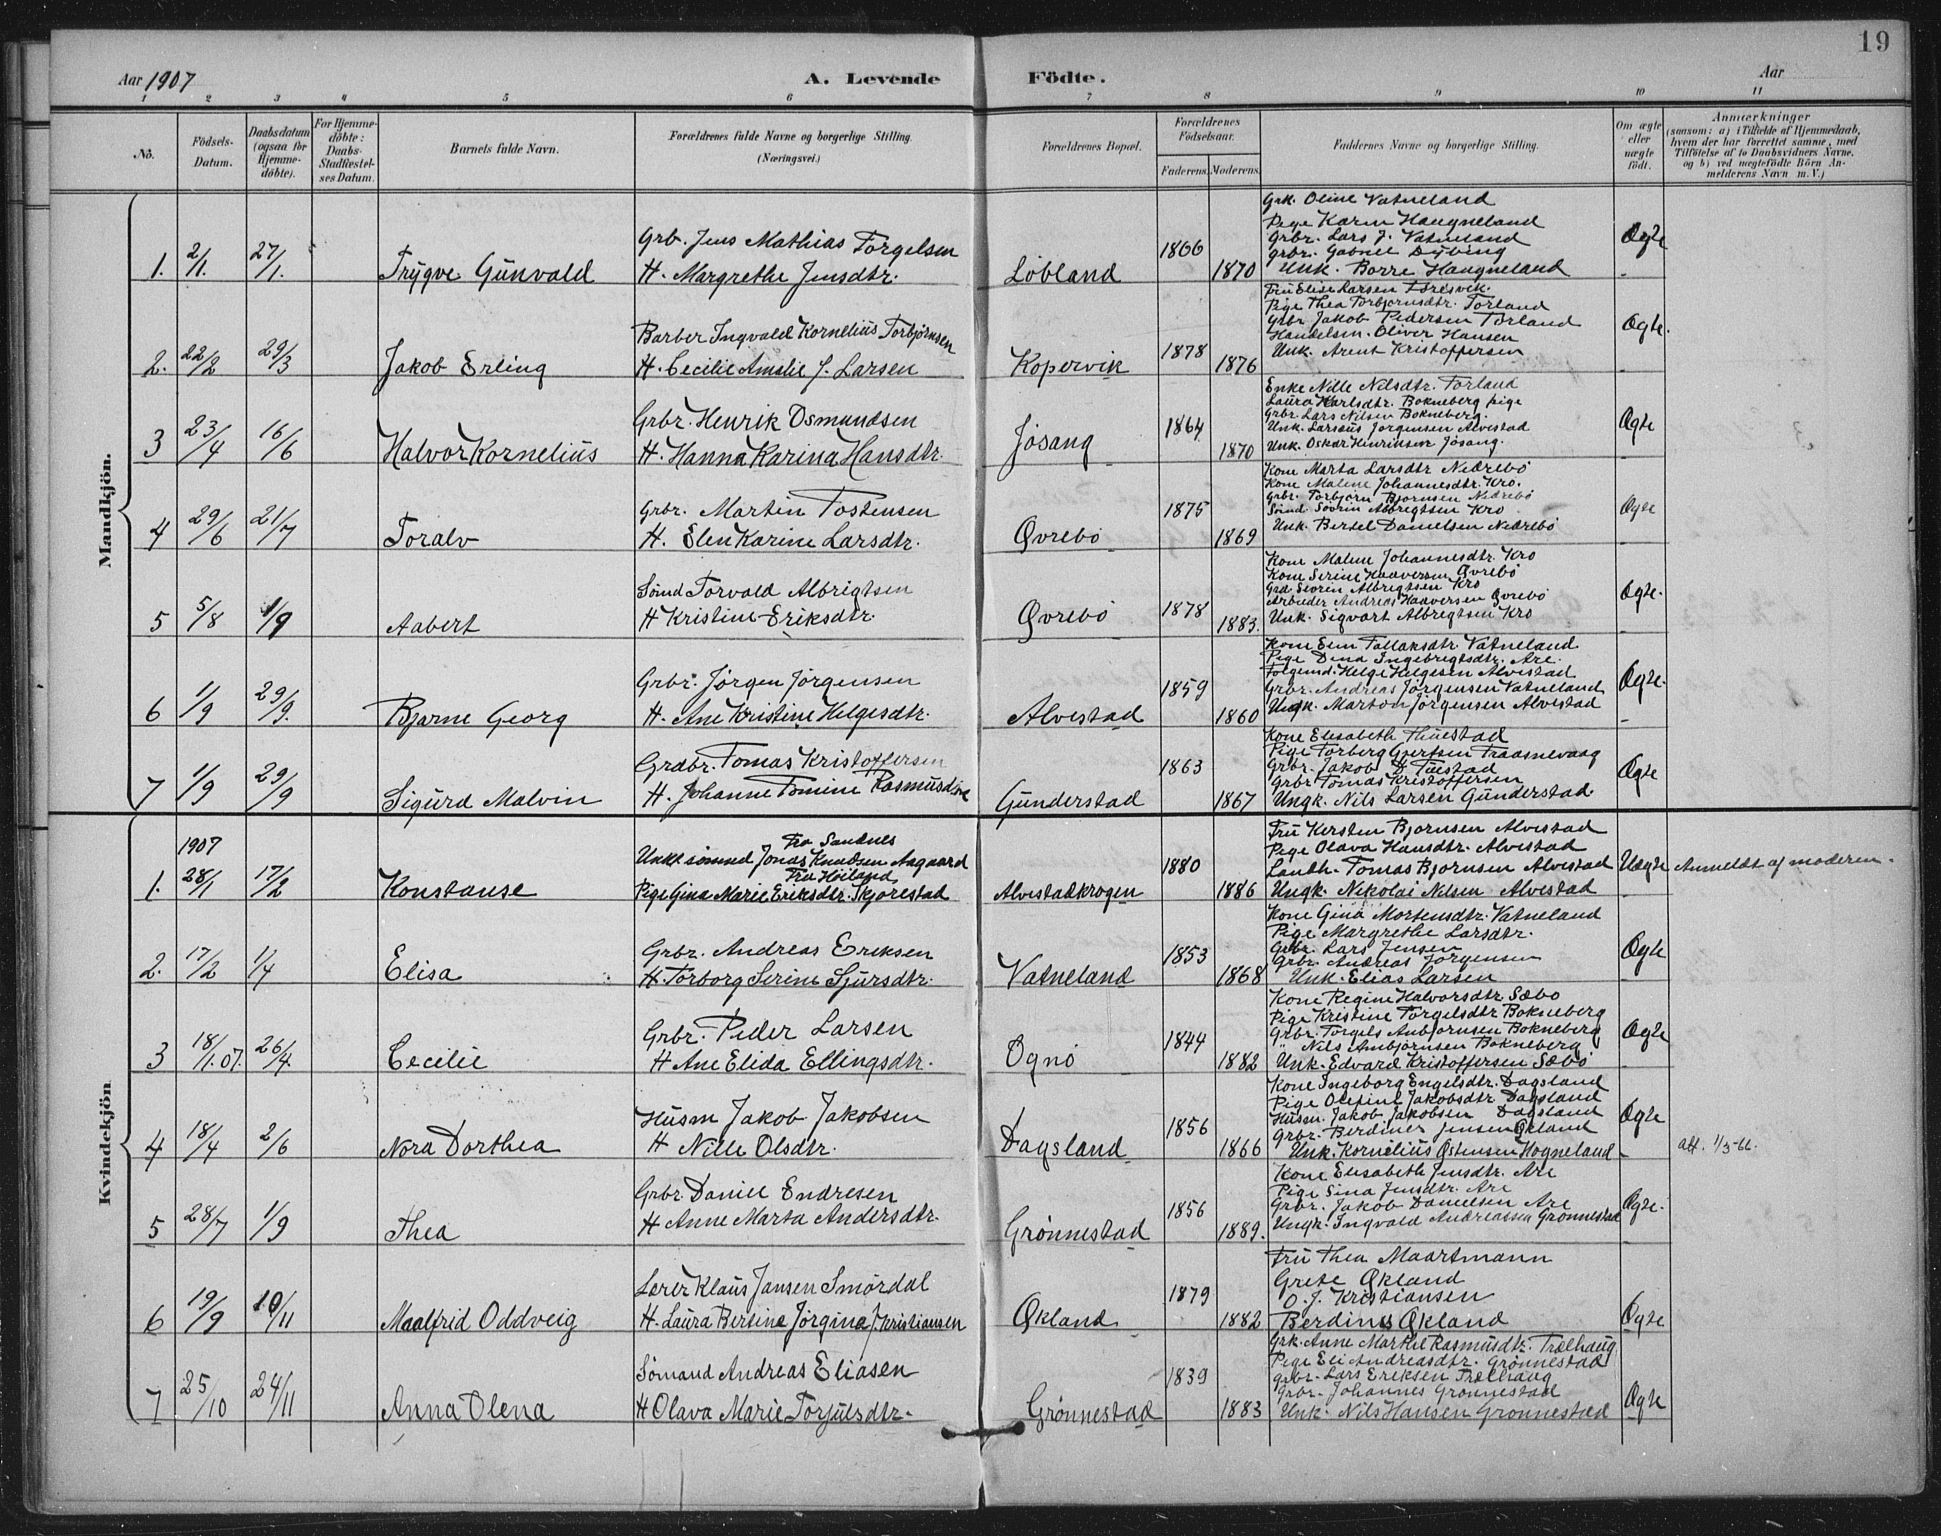 19
Aar 1907
A. Levende
Födte.
Aar
1 2 3 4 5 6 7 8 9 10 11
No.
Födsels-Datum.
Daabsdatum (ogsaa for Hjemme-döbte).
For Hjemme-döbte: Daabs-Stadfæstel-ses Datum.
Barnets fulde Navn.
Forældrenes fulde Navne og borgerlige Stilling.
(Næringsvei.)
Forældrenes Bopæl.
Forældrenes Födselsaar.
Faderens. Moderens.
Faddernes Navne og borgerlige Stilling.
Om ægte eller uægte födt.
Anmærkninger
(saasom: a) i Tilfælde af Hjemmedaab, hvem der har forrettet samme, med Tilföielse af to Daabsvidners Navne, og b) ved uægtefödte Börn An-melderens Navn m. V.)
Mandkjön.
1. 2/1. 27/1. Trygve Gunvald
Grb. Jens Mathias Torgelsen
H. Margrethe Jensdtr.
Løbland 1866 1870
Grk. Oline Vatneland
Pige Karin Haugneland
Grbr. Lars J. Vatneland
Grbr. Gabriel Dybing
Unk. Borre Haugneland
Ægte
2. 22/2 29/3 Jakob Erling
Barber Ingvald Kornelius Torbjørnsen
H. Cecilie Amalie J. Larsen
Kopervik 1878 1876
Fru Elise Larsen Føresvik.
Pige Thea Torbjørnsdtr. Torland
Grbr Jakob Pedersen Torland
Handelsm. Oliver Hansen
Unk. Arent Kristoffersen
Ægte.
3 23/4 16/6 Halvor Kornelius
Grbr. Henrik Osmundsen
H. Hanna Karina Hansdtr.
Jøsang 1864 1870
Enke Nille Nilsdtr. Torland
Laura Karlsdtr. Bokneberg pige
Grbr. Lars Nilsen Bokneberg.
Unk. Larseus Jørgensen Alvestad
Unk. Oskar Henriksen Jøsang.
Ægte
4 29/6 21/7 Toralv
Grbr. Martin Tostensen
H. Elen Karine Larsdtr.
Øvrebø 1875 1869
Kone Marta Larsdtr Nedrebø
Kone Malene Johannesdtr. Kro.
Grbr. Torbjørn Bjørnsen Nedrebø
Sømd Sovrin Albregtsen Kro
Unk. Bertel Danielsen Nedrebø
Ægte
5 5/8 1/9 Aabert
Sømd Torvald Albrigtsen
H Kristine Eriksdtr.
Øvrebø 1878 1883.
Kone Malene Johannesdtr. Kro
Kone Serine Haaversen Øvrebø
Gbd Sovrin Albregtsen Kro
Arbeider Andreas Haaversen Øvrebø
Unk. Sigvart Albregtsen Kro
Ægte.
6 1/9 29/9. Bjarne Georg
Grbr. Jørgen Jørgensen
H. Ane Kristine Helgesdtr.
Alvestad 1859 1860
Kone Elen Tollaksdtr. Vatneland
Pige Dina Ingebregtsdtr. Are.
Folgemd. Helge Helgesen Alvestad
Grbr. Andreas Jørgensen Vatneland
Ungk. Marton Jørgensen Alvestad
Ægte.
7 1/9 29/9 Sigurd Malvin
Grdbr. Tomas Kristoffersen
H. Johanne Tomine Rasmusdtr
Gunderstad 1863 1867
Kone Elisabeth Thuestad
Pige Torberg Gjertsen Traasnevaag
Grbr. Jakob D. Tuestad
Grbr Tomas Kristoffersen
Ungk. Nils Larsen Gunderstad
Ægte
Kvindekjön
1907
1. 28/1 17/2 Konstanse
Fra Sandnes
Unkl sømnd Jonas Knudsen Aagaard
Fra Høiland
Pige Gina Marie Eriksdtr. Skjørestad
Alvestadkrogen 1880 1886
Fru Kersten Bjørnsen Alvestad
Pige Olava Hansdtr. Alvestad
Landh. Tomas Bjørnsen Alvestad
Ungk. Nikolai Nilsen Alvestad
Uægte Anmeldt af moderen.
2. 17/2 1/4 Elisa
Grbr. Andreas Eriksen
H. Torborg Serine Sjursdtr.
Vatneland 1853 1868
Kone Gina Mortensdtr. Vatneland
Pige Margrethe Larsdtr.
Grbr. Lars Jensen
Grbr. Andreas Jørgensen
Unk. Elias Larsen
Ægte
3 18/1.07. 26/4. Cecilie
Grbr. Peder Larsen
H Ane Elida Ellingsdtr.
Ognø 1844 1882
Kone Regine Halvorsdtr. Sæbø
Pige Kristine Torgelsdtr Bokneberg
Grbr. Torgels Anbjørnsen Bokneberg
" Nils Ambjørnsen Bokneberg
Unk. Edvard Kristoffersen Sæbø
Ægte
4 18/4 2/6 Nora Dorthea
Husm Jakob Jakobsen
H Nille Olsdtr.
Dagsland 1856 1866
Kone Ingeborg Engelsdtr. Dagsland
Pige Olefine Jakobsdtr Dagsland
Husm. Jakob Jakobsen Dagsland
Grbr. Berdines Jensen Økland
Unk. Kornelius Østensen Hogneland
Ægte
att. 1/3-66.
5 28/7 1/9 Thea
Grbr. Daniel Endresen
H Anne Marta Andersdtr.
Grønnestad 1856 1889.
Kone Elisabeth Jensdtr. Are
Pige Sina Jensdtr. Are
Grbr. Jakob Danielsen Are
Ungk. Ingvald Andreassen Grønnestad
Ægte.
6 19/9 10/11 Maalfrid Oddveig
Lærer Klaus Jansen Smørdal
H. Laura Bertine Jørgine J Kristiansen
Økland 1879 1882
Fru Thea Maartmann
Grete Økland
O. J. Kristiansen
Berdinus Økland
Ægte
7 25/10 24/11 Anna Olena
Sømand Andreas Eliasen
H Olava Marie Torjulsdtr.
Grønnestad 1839 1883
Grk. Anne Marthe Rasmusdtr. Trælhaug
Pige Eli Andreasdtr. Grønnestad
Grbr. Lars Eriksen Trælhaug
Grbr. Johannes Grønnestad
Unk. Nils Hansen Grønnestad
Ægte